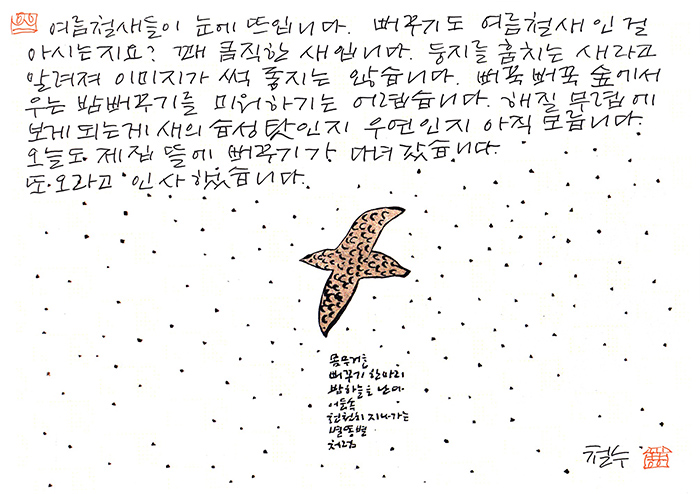 여름철새들이 눈에 뜨입니다. 뻐꾸기도 여름철새인걸
아시는지요? 꽤 큼직한 새입니다. 둥지를 훔치는 새라고
알려져 이미지가 썩 좋지는 않습니다. 뻐꾹뻐꾹 숲에서
우는 밤뻐꾸기를 미워하기는 어렵습니다. 해질 무렵에
보게 되는게 새의 습성 탓인지 우연인지 아직 모릅니다.
오늘도 제 집 뜰에 뻐꾸기가 다녀갔습니다.
또 오라고 인사했습니다.
몸무거운
뻐꾸기 한마리
밤하늘을 난다
어둠속
천천히 지나가는
별똥별
처럼
철수